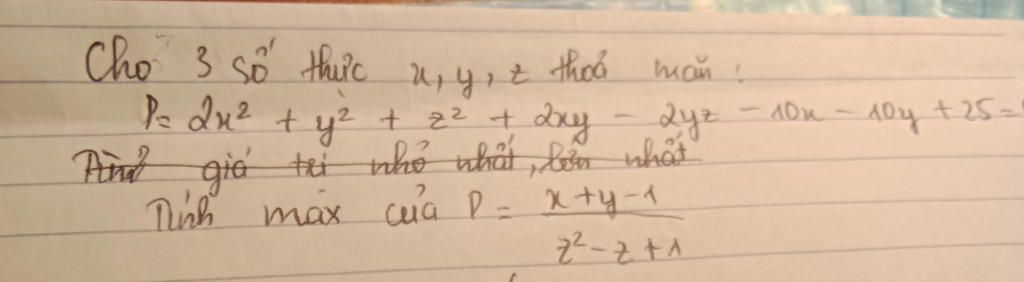 Cho 3 số thực x, y, z thoả mãn :
P = 2x² + y² + z² + 2xy - 2yz - 10x - 10y + 25 =
Tìm giá trị nhỏ nhất, lớn nhất
Tính max của P = x+y-1
z² - z + 1